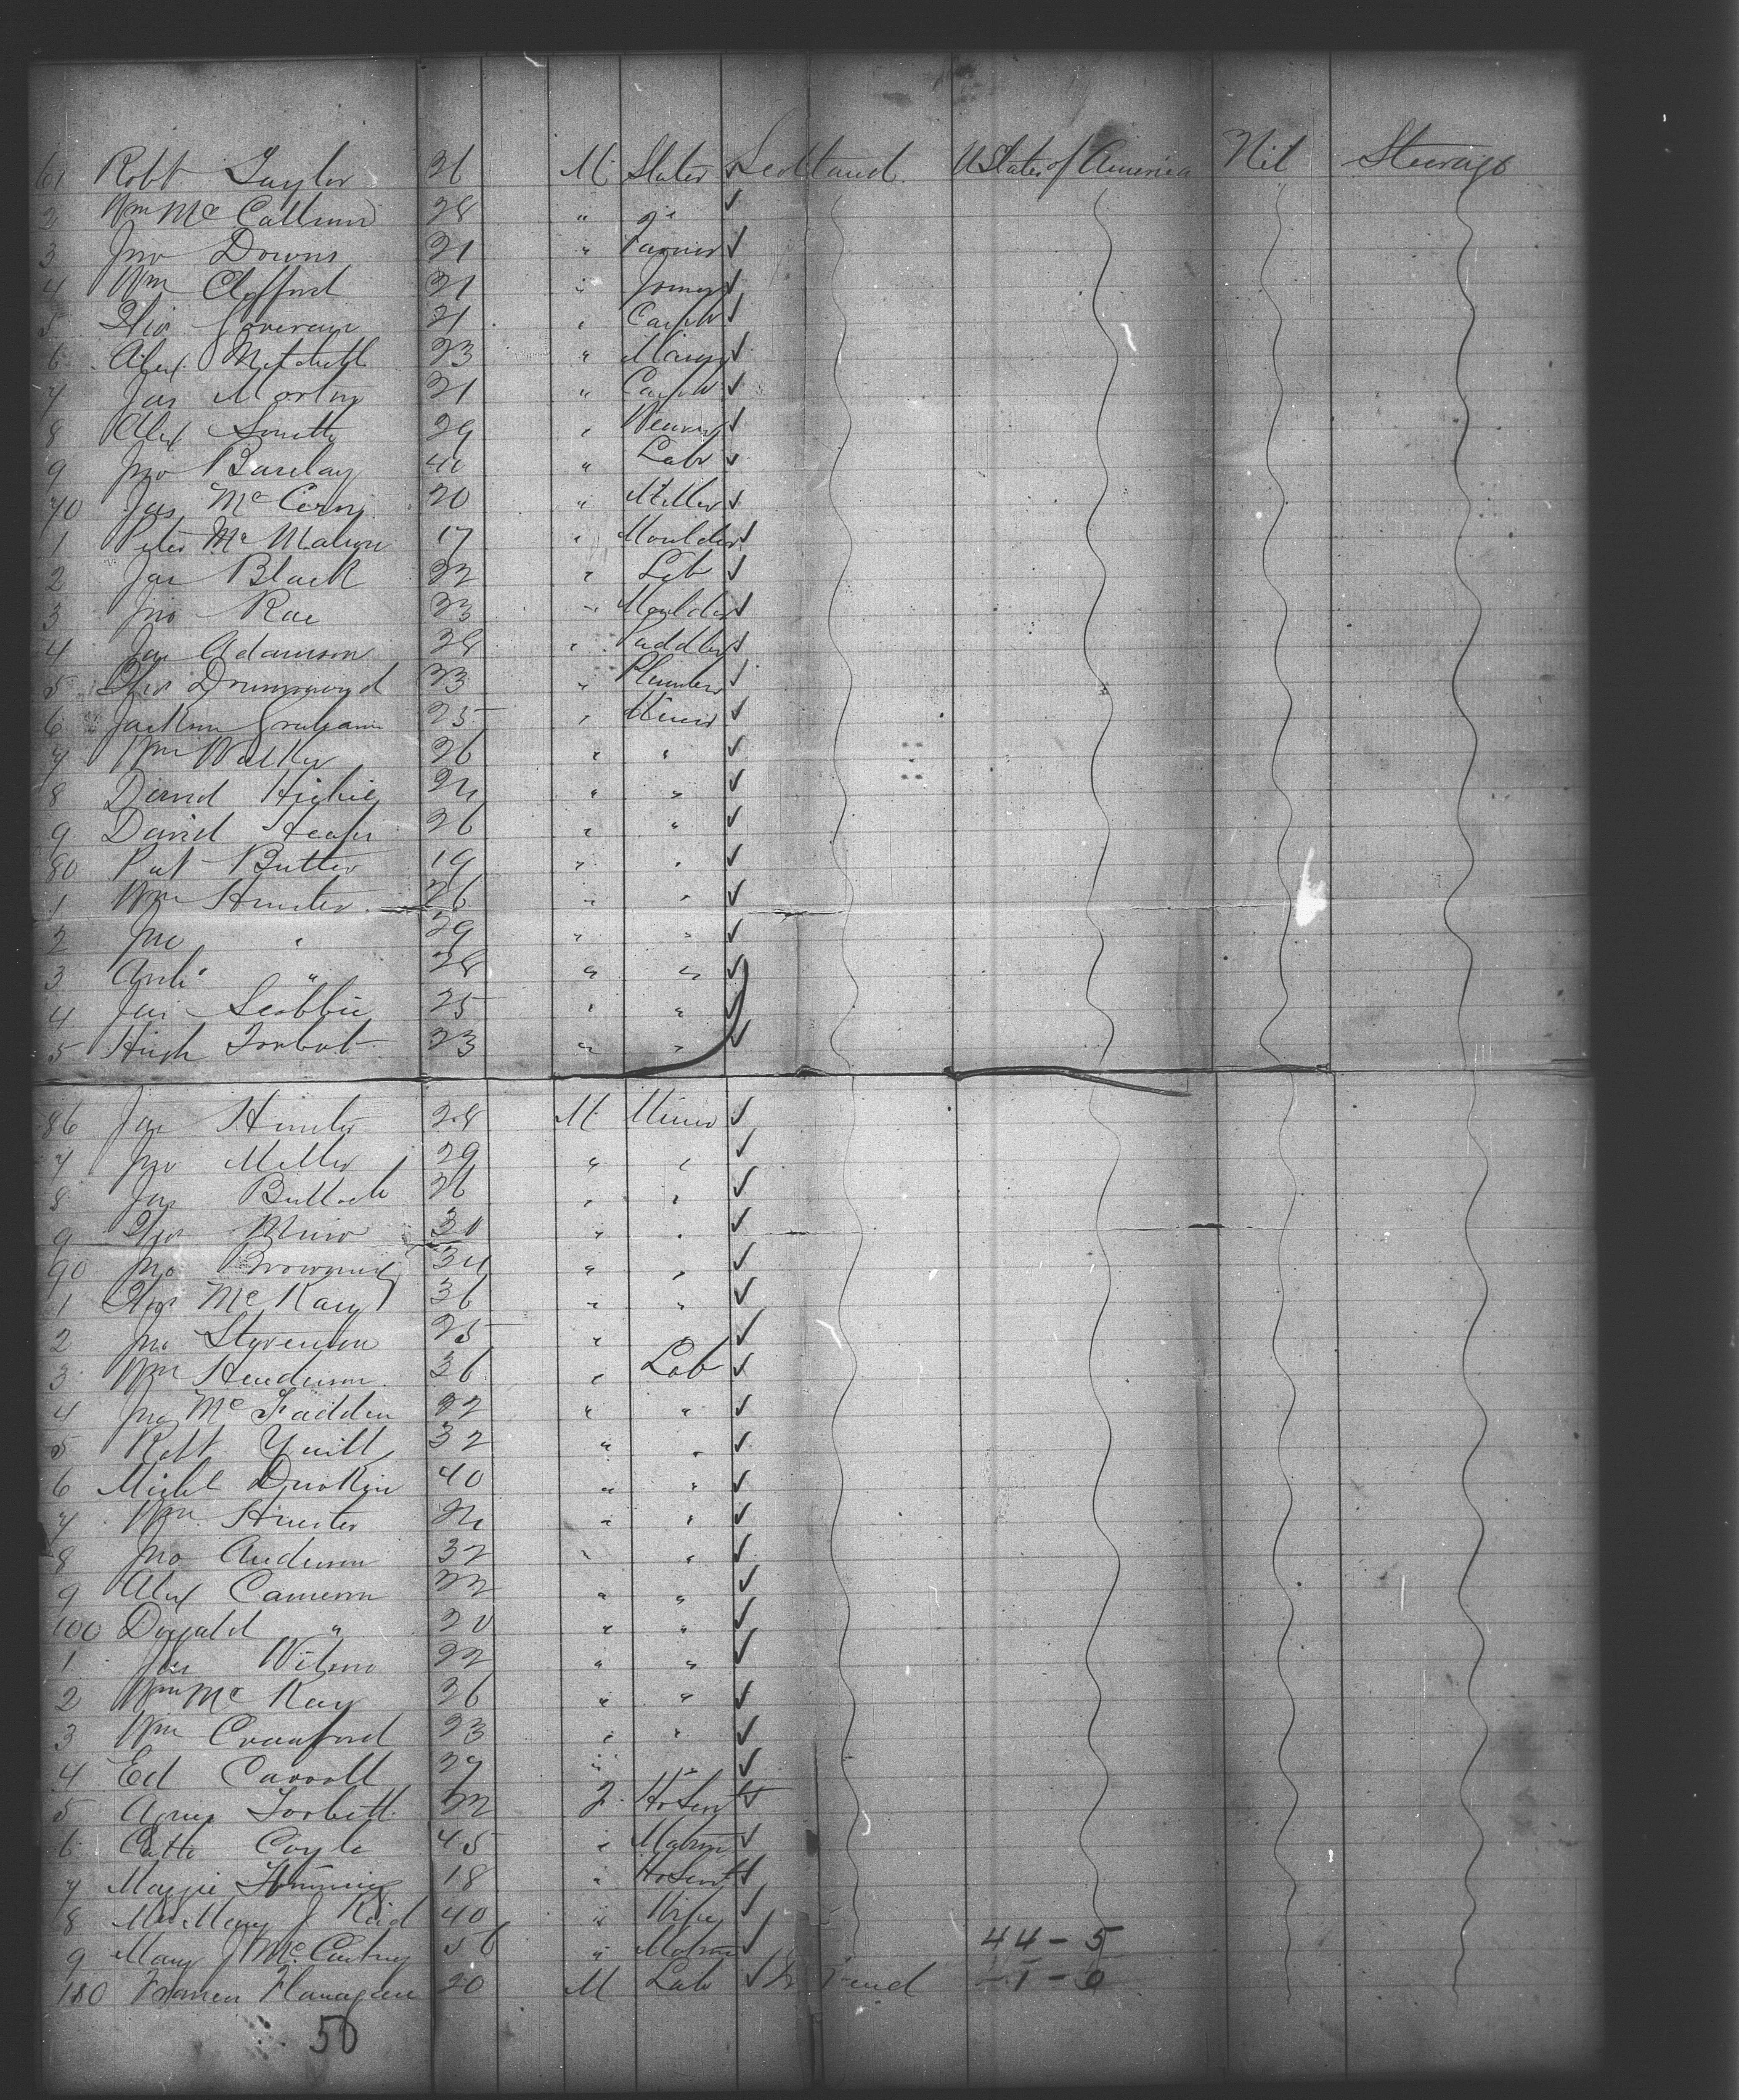 61 Robt Taylor 26 M Slater Scotland U States of America Nil Steerage
2 Wm McCallum 28 " "
3 Jno Downs 21 " Farmer
4 Wm Clifford 21 " Joiner
5 Thos 21 "
6 Alex Mitchell 23 " Mason
7 Jas Morton 21 "
8 Alex Smith 29 " Weaver
9 Jno Barclay 40 " Lab
70 Jas 20 " Miller
1 Peter McMahon 17 " Moulder
2 Jas Black 22 " Lab
3 Jno Rae 23 " Moulder
4 Jas Adamson 28 "
5 Thos Drummond 23 " Plumber
6 Jackson Graham 25 " Miner
7 Wm Walker 26 " "
8 David Hickie 24 " "
9 David 26 " "
80 Pat Butler 19 " "
1 Wm Hunter 26 " "
2 Jno " 29 " "
3 Archd " 28 " "
4 Jas Scobbie 25 " "
5 Hugh Torbet 23 " "
86 Jas Hunter 28 M Miner
7 Jno Miller 29 " "
8 Jas Bulloch 26 " "
9 Thos Muir 30 " "
90 Jno Browning 34 " "
1 Thos McKay 36 " "
2 Jno Stevenson 25 " "
3 Wm Henderson 36 " Lab
4 Jno McFadden 22 " "
5 Robt Yuill 32 " "
6 Michl Durkin 40 " "
7 Wm Hunter 24 " "
8 Jno Anderson 32 " "
9 Alex Cameron 22 " "
100 Donald " 20 " "
1 Jas Wilson 22 " "
2 Wm McKay 26 " "
3 Wm Crawford 23 " "
4 Ed Carroll 27 " "
5 Agnes Torbett 22 F Ho Servt
6 Cath Coyle 45 " Matron
7 Maggie 18 " Ho Servt
8 Mrs Mary J Reid 40 " Wife
9 Mary J McCartney 56 " Matron 44 - 5
110 Francis Flanagan 20 M Lab - 0
50